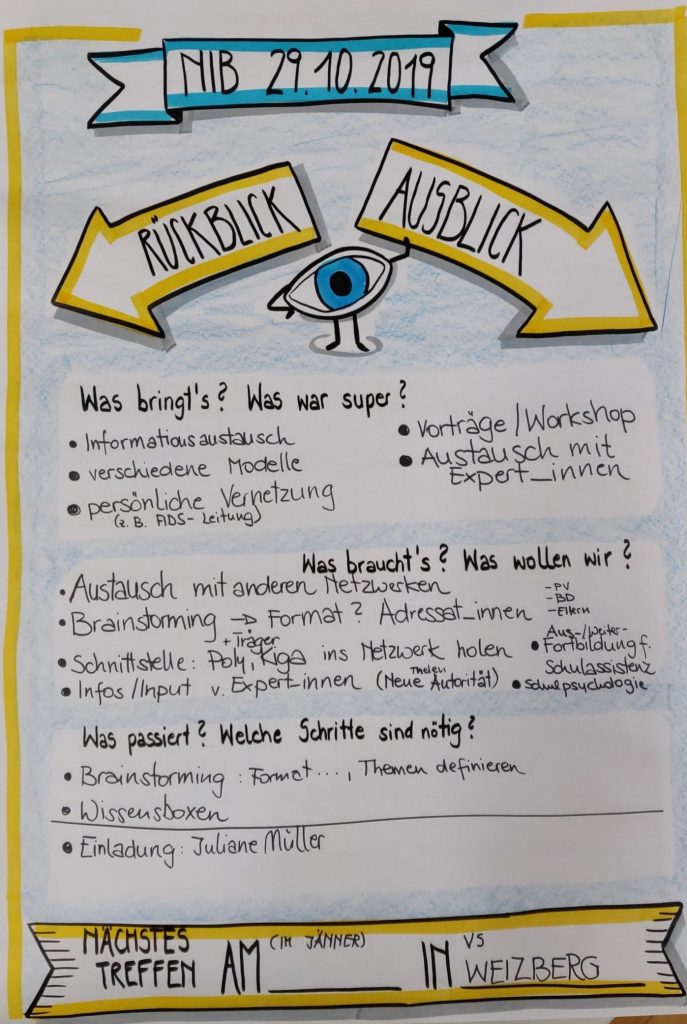 NIB 29.10.2019
RÜCKBLICK
AUSBLICK
Was bringt's? Was war super?
• Informationsaustausch
• verschiedene Modelle
• persönliche Vernetzung
(z. B. FIDS-Leitung)
• Vorträge/Workshop
• Austausch mit
Expert_innen
Was braucht's? Was wollen wir?
• Austausch mit anderen Netzwerken
• Brainstorming → Format? Adressat_innen
- PV
- BD
- Eltern
+ Träger
• Schnittstelle: Poly, Kiga ins Netzwerk holen
• Infos/Input v. Expert_innen (Neue Autorität)
Aus-/Weiter-
• Fortbildung f.
Schulassistenz
• Schulpsychologie
Was passiert? Welche Schritte sind nötig?
• Brainstorming: Format..., Themen definieren
• Wissensboxen
• Einladung: Juliane Müller
NÄCHSTES
TREFFEN
AM (IM JÄNNER)
IN VS
WEIZBERG